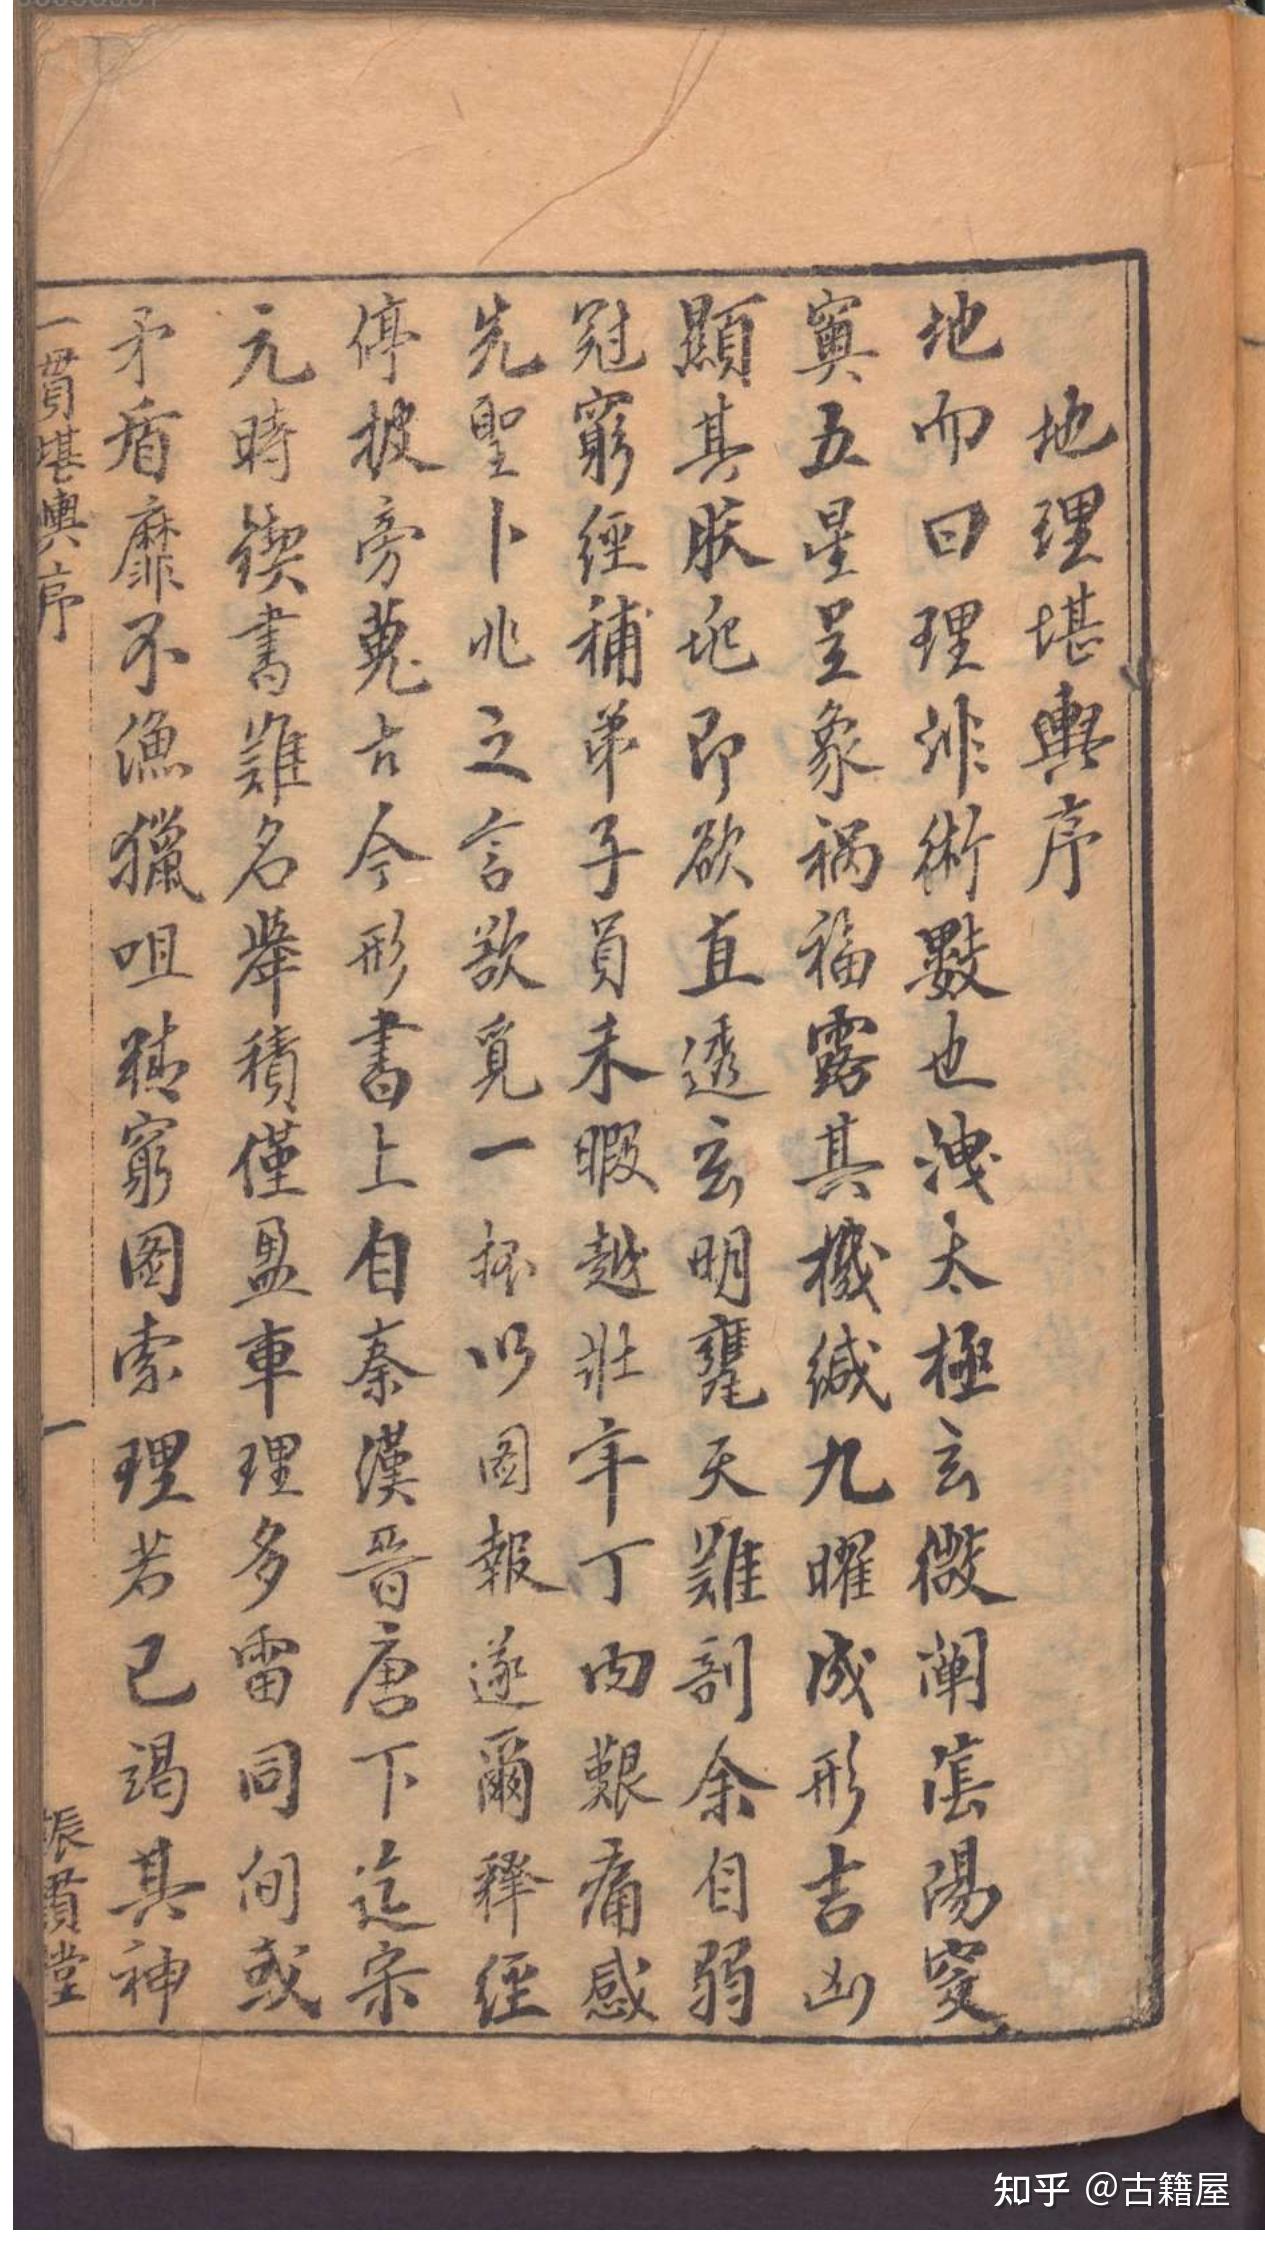 地理堪輿序
地而曰理非術數也洩太極玄微闡陰陽窔
窴五星呈象禍福露其機緘九曜成形吉凶
顯其朕兆即欲直透玄明躔天難剖余自弱
冠窮經補弟子員未暇越壯年丁內艱痛感
先聖卜兆之言欲覓一抔以圖報遂爾釋經
停披旁蒐古今形書上自秦漢晉唐下迄宋
元時鍥書難名舉積僅盈車理多雷同間或
矛盾靡不漁獵咀精窮圖索理若已竭其神
一貫堪輿序
一
振賢堂
知乎 @古籍屋